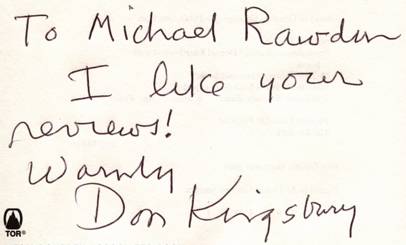 To Michael Rawdon
I like your
reviews!
Warmly
Don Kingsbury
TOR®